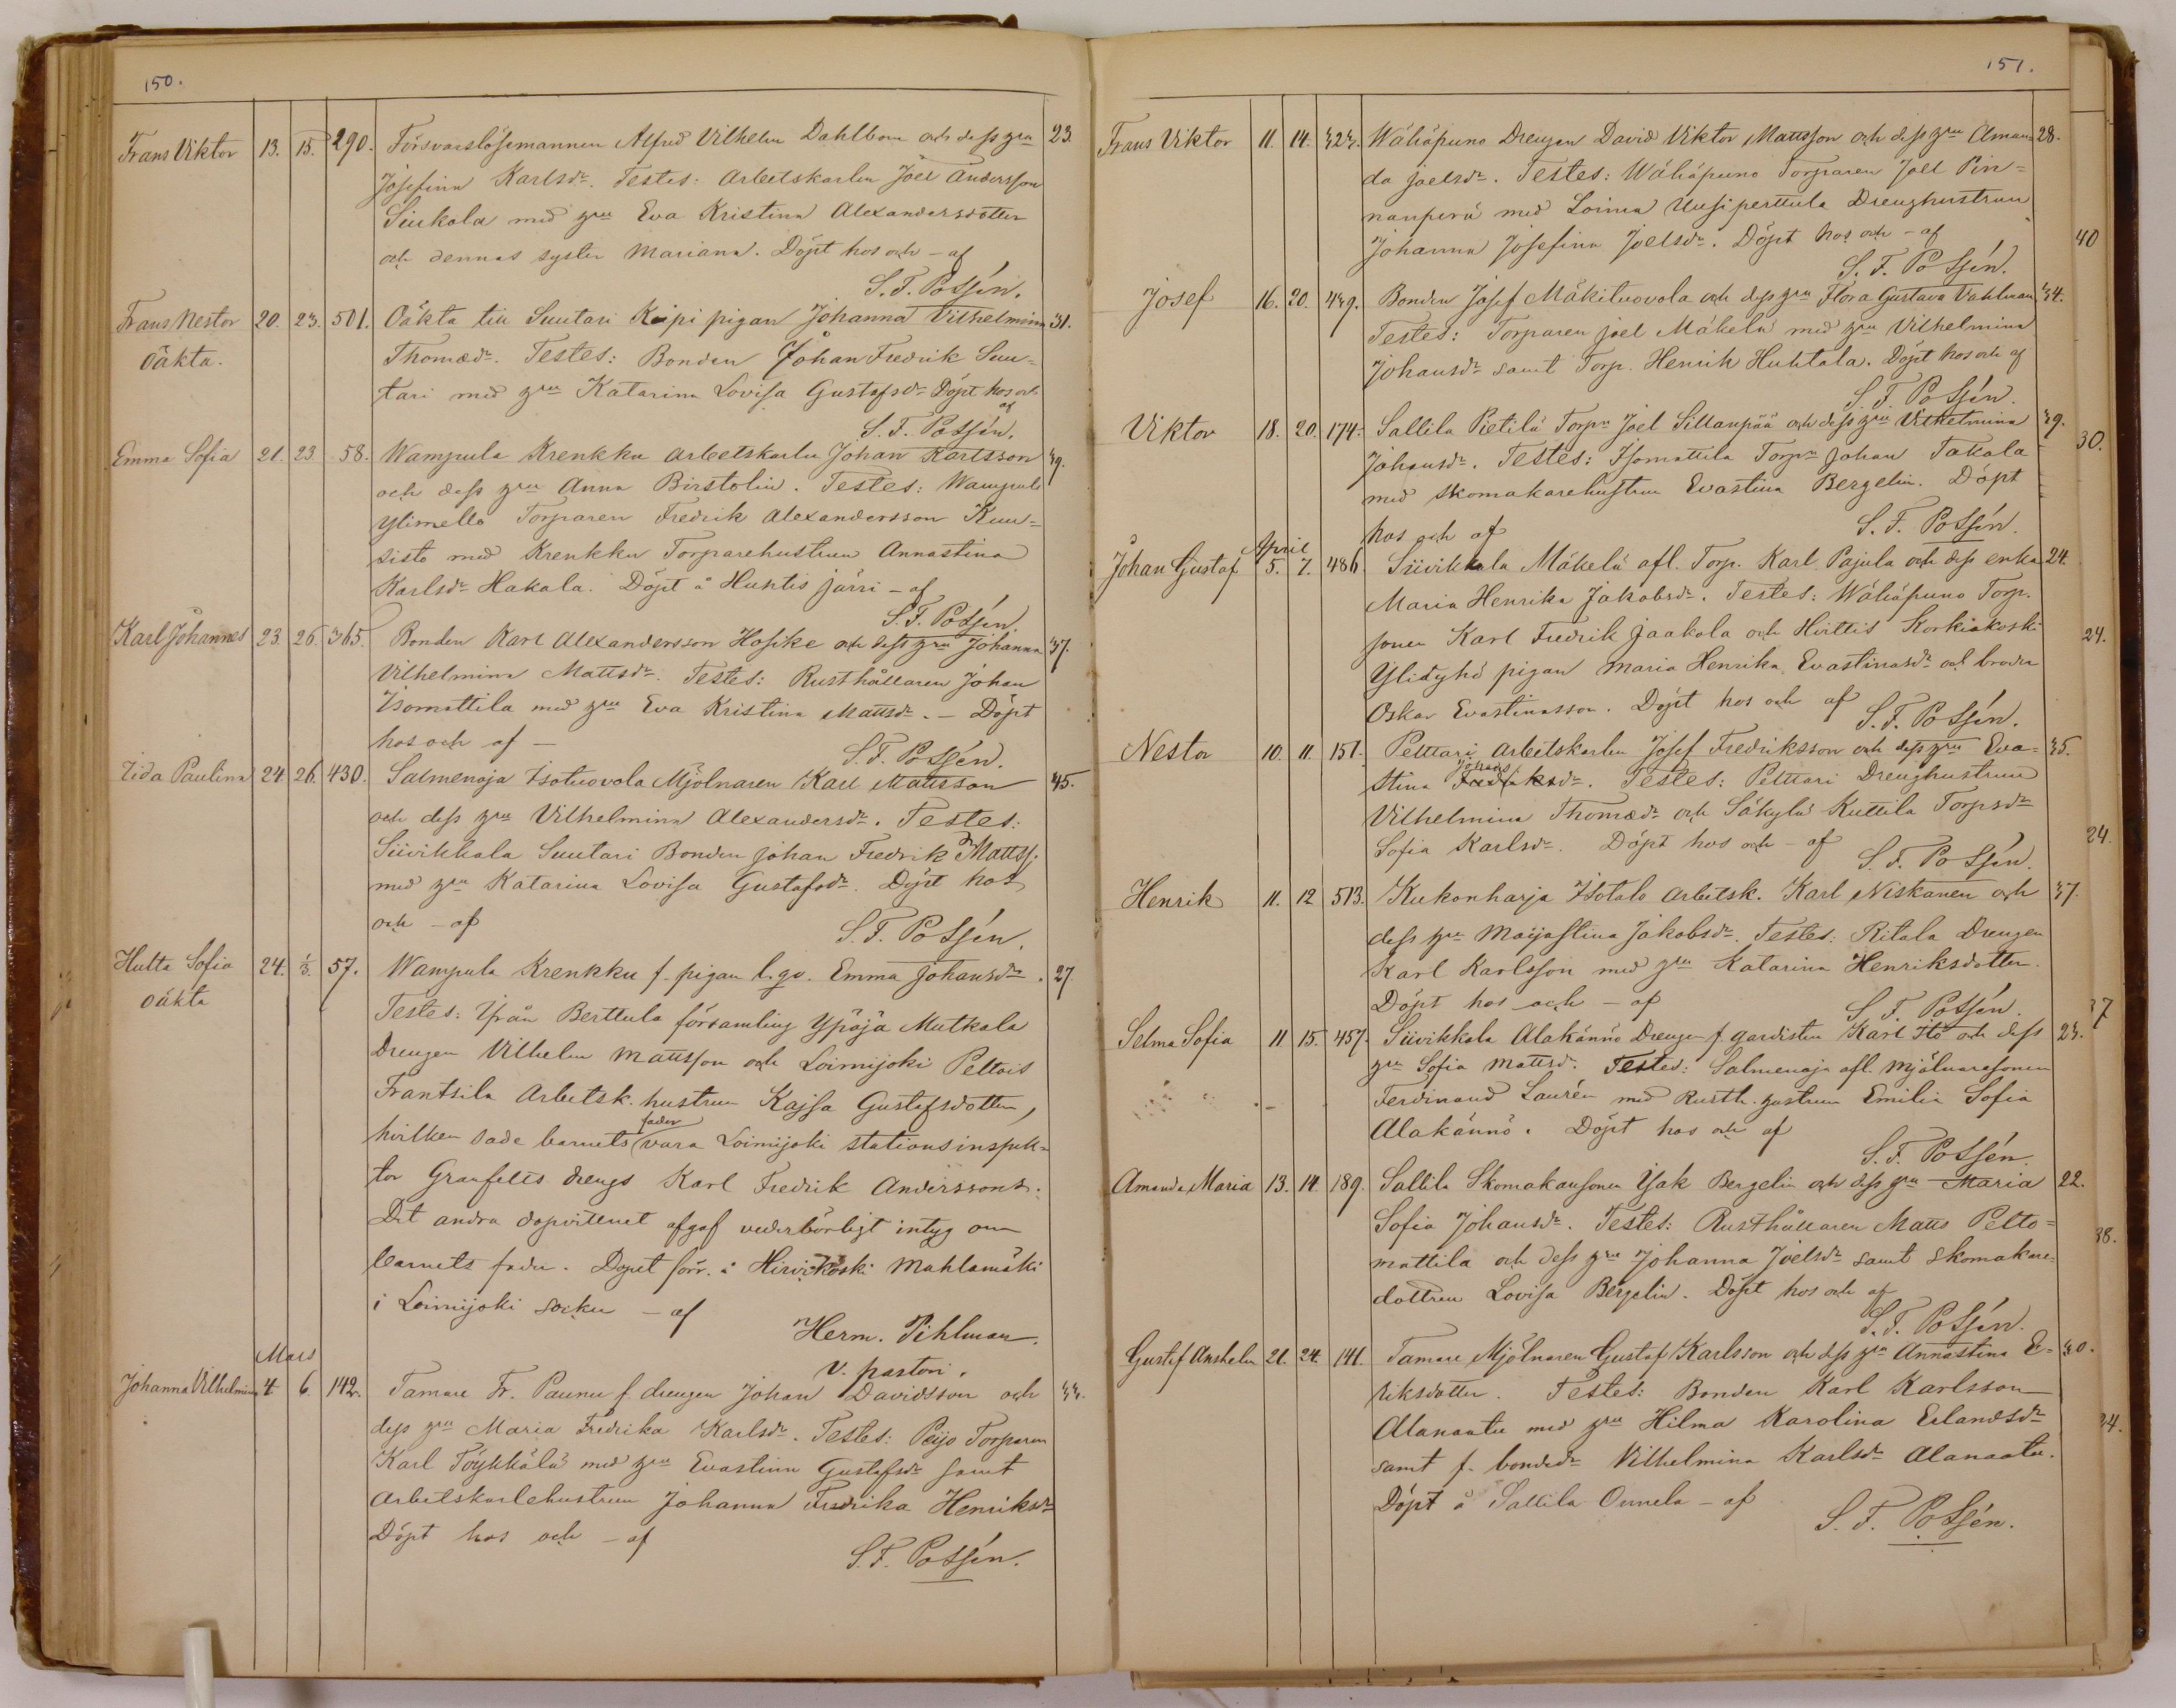 150.
Frans Viktor 13. 15. 290. Försvarslösemannen Alfred Vilhelm Dahlbom och dess hru 23.
Josefina Karlsdr. Testes: Arbetskarlen Joel Andersson
Siukola med hru Eva Kristina Alexandersdotter
och dennas syster Mariana. Döpt hos och - af
S. F. Possén.
Frans Nestor 20. 23. 501. Oäkta till Suutari Kipi pigan Johanna Vilhelmina 31.
Oäkta. Thomædr. Testes: Bonden Johan Fredrik Suu-
tari med hru Katarina Lovisa Gustafsdr Döpt hos och
af
S. F. Possén.
Emma Sofia 21. 23. 58. Wampula Krenkku arbetskarlen Johan Karlsson 39.
och dess hru Anna Birstolin. Testes: Wampula
Ylimello Torparen Fredrik Alexandersson Kuu-
sisto med Krenkku Torparehustrun Annastina
Karlsdr Hakala. Döpt å Huhtis järvi - af
S. F. Possén.
Karl Johannes 23. 26. 365. Bonden Karl Alexandersson Hosike och dess hru Johanna 37.
Vilhelmina Mattsdr. Testes: Rusthållaren Johan
Isomattila med hru Eva Kristina Mattsdr. - Döpt
hos och af -
S. F. Possén.
Lida Paulina 24 26. 430. Salmenoja Isotuovola Mjölnaren Karl Mattsson 45.
och dess hru Vilhelmina Alexandersdr. Testes:
Siivikkala Suutari Bonden Johan Fredrik Mattss:
med hru Katarina Lovisa Gustafsdr. Döpt hos
och - af
S. F. Possén.
Hulta Sofia 24. 1/3. 57. Wampula Krenkku f. pigan l. gv. Emma Johansdr. 27.
oäkta Testes: Ifrån Berttula församling Ypäjä Mutkala
Drengen Vilhelm Mattsson och Loimijoki Peltois
Frantsila Arbetsk. hustrun Kajsa Gustafsdotter,
hvilken sade barnets fader vara Loimijoki stationsinspek-
tor Granfelts drengs Karl Fredrik Anderssons.
Det andra dopvittnet afgaf vederbörligt intyg om
barnets fader. Döpet förr. i Hirvikoski Mahlamäki
i Loimijoki socken - af
Herm. Pihlman.
v. pastori.
Mars
Johanna Vilhelmina 4 6. 142. Tamare Fr. Paunu f. drengen Johan Davidsson och 33.
dess hru Maria Fredrika Karlsdr. Testes: Peijo Torparen
Karl Töykkälä med hru Evastina Gustafsdr samt
Arbetskarlehustrun Johanna Fredrika Henriksdr
Döpt hos och - af
S. F. Possén.
151.
Frans Viktor 11. 14. 323. Wähäpuno Drengen David Viktor Mattsson och dess hru Aman- 28.
da Joelsdr. Testes: Wähäpuno Torparen Joel Pin-
nanperä med Loima Uusiperttula Drenghustrun
Johanna Josefina Joelsdr. Döpt hos och - af
S. F. Possén.
Josef 16. 20. 439. Bonden Josef Mäkituovola och dess hru Flora Gustava Vahlman 34.
Testes: Torparen Joel Mäkelä med hru Vilhelmina
Johansdr samt Torp. Henrik Huhtala. Döpt hos och af
S. F. Possén.
Viktor 18. 20. 174. Sallila Pietilä Torpn Joel Sillanpää och dess hru Vilhelmina 39.
Johansdr. Testes: Isomattila Torpn Johan Takala
med Skomakarehustrun Evastina Bergelin. Döpt
hos och af
S. F. Possén.
April
Johan Gustaf 5. 7. 486. Siivikkala Mäkelä afl. Torp. Karl Pajula och dess enka 24.
Maria Henrika Jakobsdr. Testes: Wähäpuno Torp.
sonen Karl Fredrik Jaakola och Hvittis Korkiakoski
Ylidyhö pigan Maria Henrika Evastinasdr och brodren
Oskar Evastinasson. Döpt hos och af
S. F. Possén.
Nestor 10. 11. 151. Pelttari arbetskarlen Josef Fredriksson och dess hru Eva- 35.
stina Fredriksdr Johans. Testes: Pelttari Drenghustrun
Vilhelmina Thomædr och Säkylä Kuttila Torpsdr
Sofia Karlsdr. Döpt hos och - af
S. F. Possén.
Henrik 11. 12 513. Kukonharja Isotalo Arbetsk. Karl Niskanen och 37.
dess hru Maijastina Jakobsdr. Testes: Ritala Drengen
Karl Karlsson med hru Katarina Henriksdotter.
Döpt hos och - af
S. F. Possén.
Selma Sofia 11 15. 457. Siivikkala Alakännö Drengen f. gardisten Karl Itö och dess 23.
hru Sofia Mattsd. Testes: Salmenoja afl. Mjölnaresonen
Ferdinand Laurén med Rusth. hustrun Emilia Sofia
Alakännö. Döpt hos och af
S. F. Possén.
Amanda Maria 13. 14. 189. Sallila Skomakaresonen Isak Bergelin och dess hru Maria 22.
Sofia Johansdr. Testes: Rusthållaren Matts Pelto-
mattila och dess hru Johanna Joelsdr samt Skomakare-
dottren Lovisa Bergelin. Döpt hos och af
S. F. Possén.
Gustaf Anshelm 21. 24. 141. Tamare Mjölnaren Gustaf Karlsson och dess hru Annastina E- 30.
riksdotter. Testes: Bonden Karl Karlsson
Alanaatu med hru Hilma Karolina Erlandsdr
samt f. bondedr Vilhelmina Karlsdr Alanaatu.
Döpt å Sallila Onnela - af
S. F. Possén.
40
30.
24.
24.
37
38.
24.